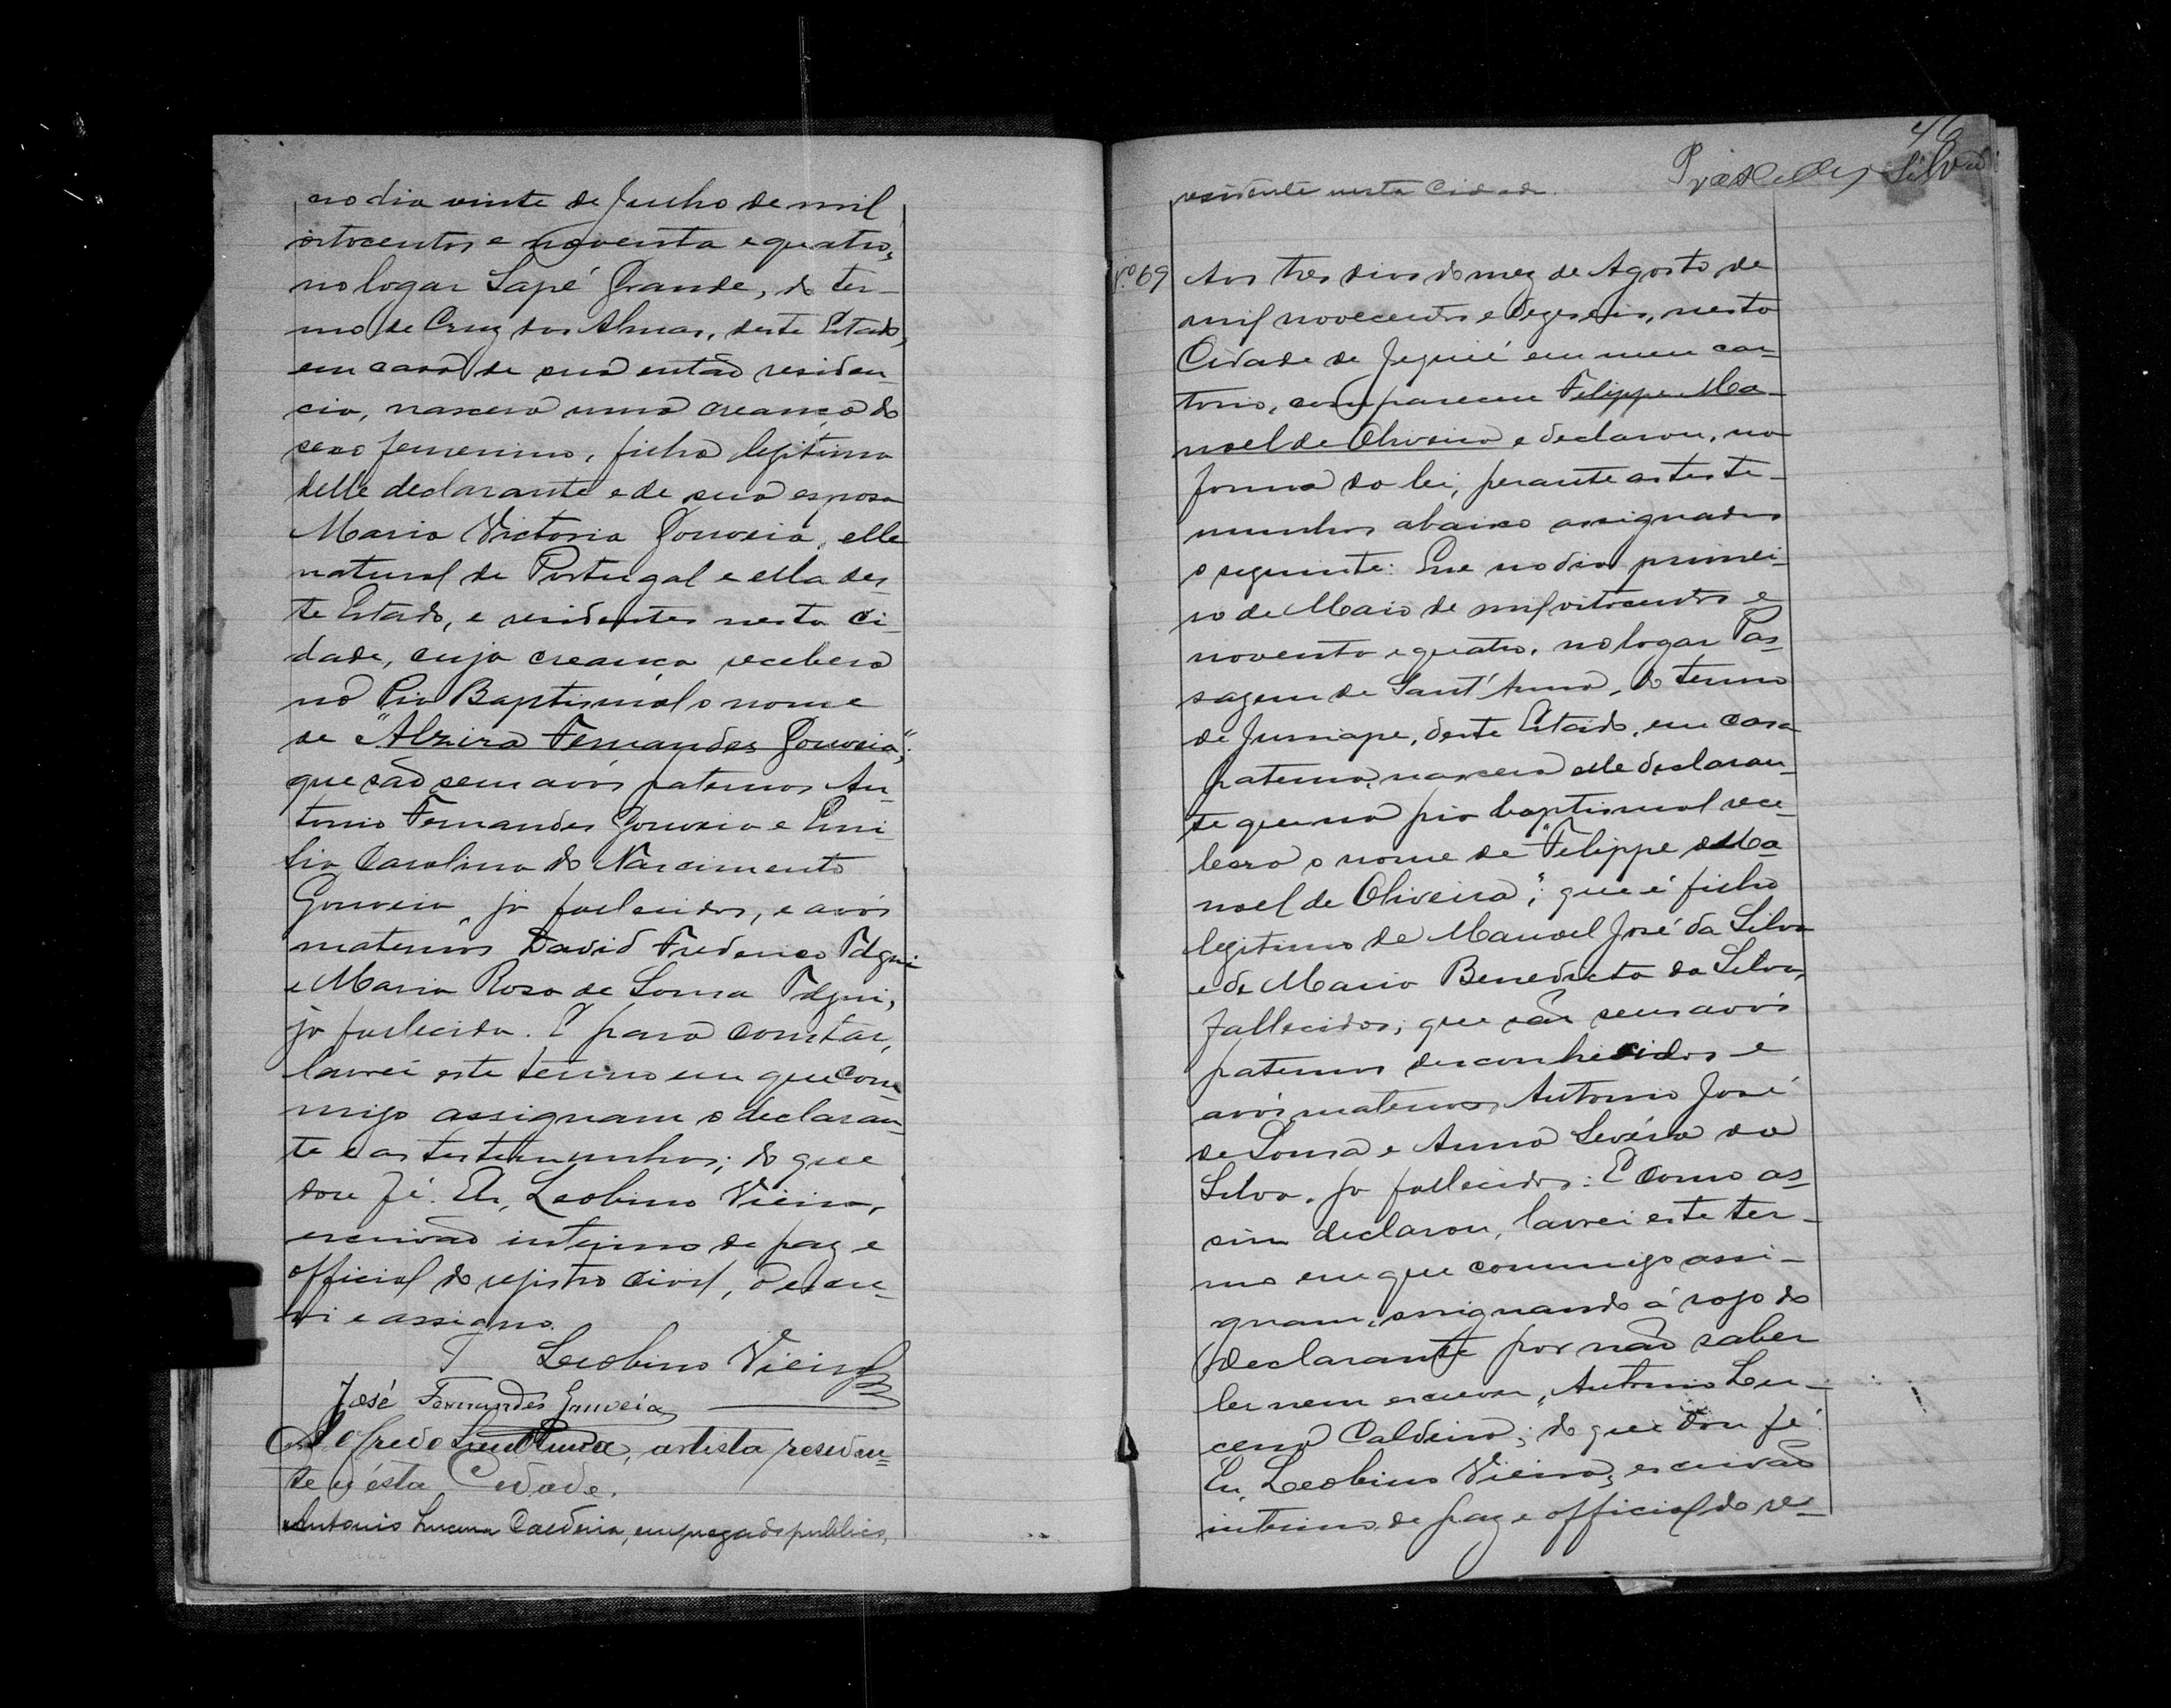 no dia vinte de Junho de mil
oitocentos e noventa e quatro,
no logar Sapé Grande, do ter-
mo de Cruz das Almas, deste Estado,
em casa de sua então residen-
cia, nascera uma creança do
sexo femenino, filha legitima
delle declarante e de sua esposa
Maria Victoria Gouveia, elle
natural de Portugal e ella des-
te Estado, e residentes nesta Ci-
dade, cuja creança recebera
na Pia Baptismal o nome
de "Alzira Fernandes Gouveia";
que são seus avós paternos An-
tonio Fernandes Gouveia e Emi-
lia Carolina do Nascimento
Gouveia, já fallecidos, e avós
maternos David Frederico
e Maria Rosa de Sousa
já fallecida. E para constar,
lavrei este termo em que com-
migo assignam o declaran-
te e as testemunhas; do que
dou fé. Eu, Leobino Vieira,
escrivão interino de paz e
official do registro civil, o escre-
vi e assigno.
Leobino Vieira
José Fernandes Gouveia
Alfredo Sant'Anna, artista residen=
te n'ésta Cidade.
Antonio Lucena Caldeira, empregado publico,
46
Silva
residente nesta Cidade.
Nº 69 Aos tres dias do mez de Agosto de
mil novecentos e dezeseis, nesta
Cidade de Jequié em meu car-
torio, compareceu Filippe Ma-
noel de Oliveira e declarou, na
forma da lei, perante as teste-
munhas abaixo assignadas
o seguinte: Que no dia primei-
ro de Maio de mil oitocentos e
noventa e quatro, no logar Pas-
sagem de Sant'Anna, do termo
de Jussiape, deste Estado, em casa
paterna, nascera elle declaran-
te que na pia baptismal rece-
bera o nome de "Filippe Ma-
noel de Oliveira"; que é filho
legitimo de Manoel José da Silva
e de Maria Benedicta da Silva,
fallecidos; que são seus avós
paternos desconhecidos e
avós maternos Antonio José
de Sousa e Anna Sevéra da
Silva, já fallecidos: E como as-
sim declarou, lavrei este ter-
mo em que commigo assi-
gnam, assignando á rogo do
declarante por não saber
ler nem escrever, Antonio Lu-
cena Caldeira; do que dou fé.
Eu, Leobino Vieira, escrivão
interino de paz e official do re-